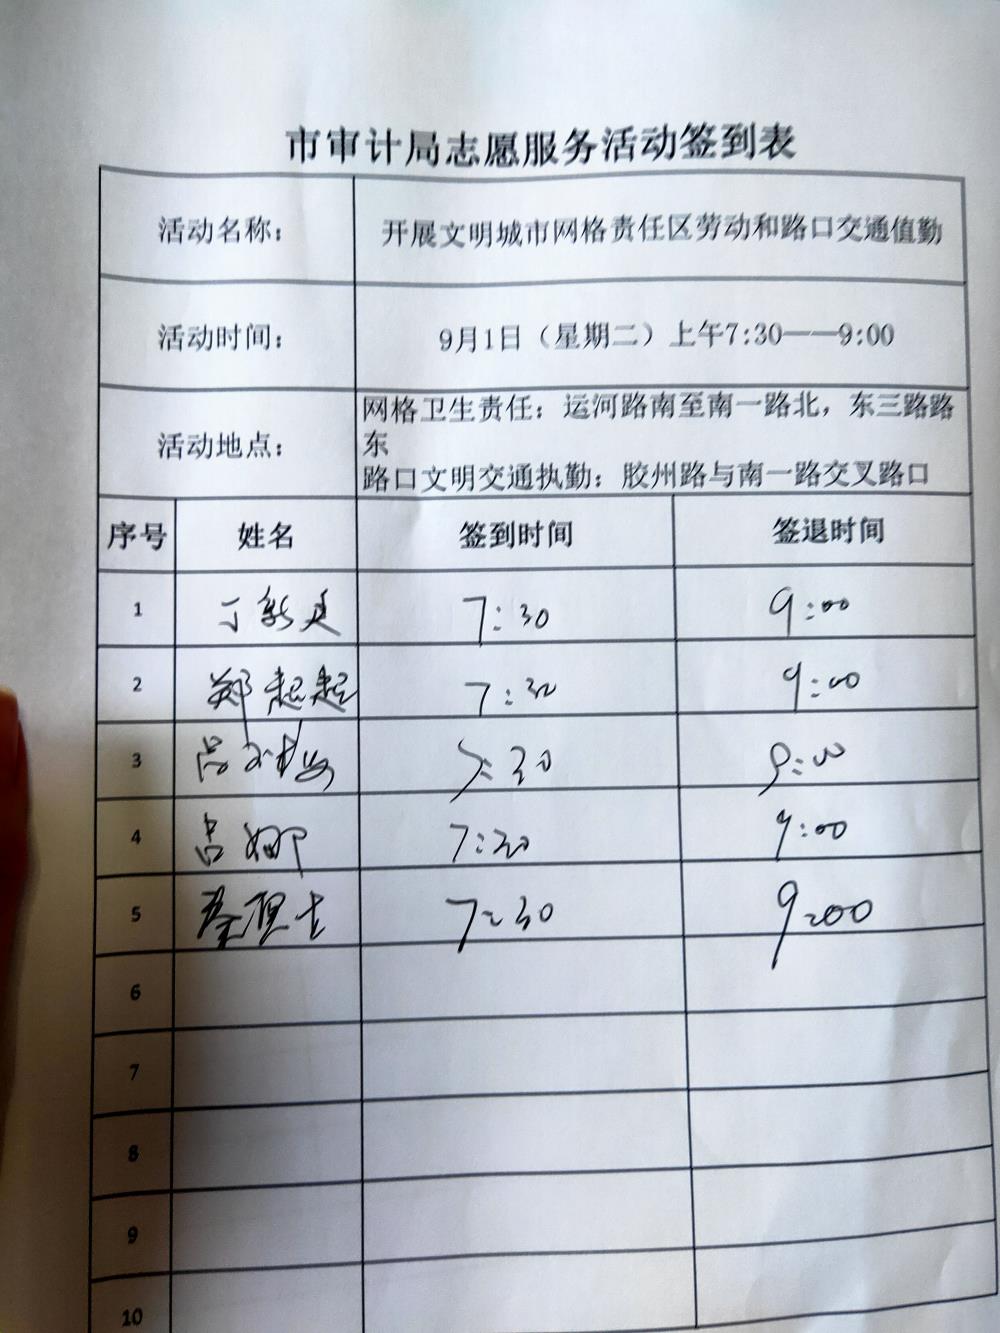 市审计局志愿服务活动签到表
活动名称： 开展文明城市网格责任区劳动和路口交通值勤
活动时间： 9月1日（星期二）上午7:30——9:00
活动地点： 网格卫生责任：运河路南至南一路北，东三路路
东
路口文明交通执勤：胶州路与南一路交叉路口
序号 姓名 签到时间 签退时间
1 丁新廷 7:30 9:00
2 郑起超 7:30 9:00
3 7:30 9:00
4 吕娜 7:30 9:00
5 7:30 9:00
6
7
8
9
10